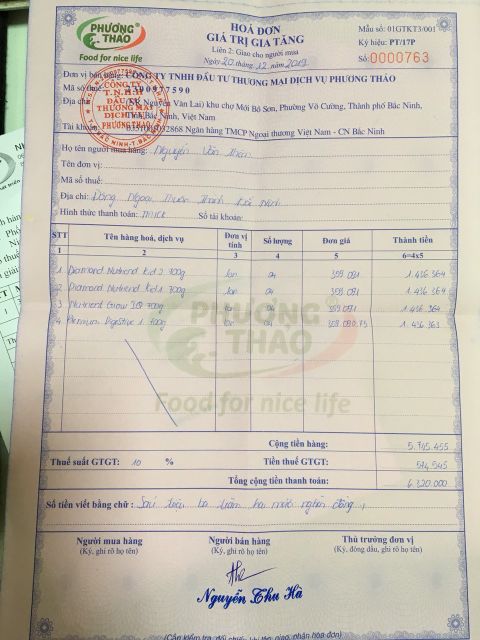 PHƯƠNG THẢO
Food for nice life
HOÁ ĐƠN
GIÁ TRỊ GIA TĂNG
Liên 2: Giao cho người mua
Ngày 20 tháng 12 năm 2019
Mẫu số: 01GTKT3/001
Ký hiệu: PT/17P
Số: 0000763
Đơn vị bán hàng: CÔNG TY TNHH ĐẦU TƯ THƯƠNG MẠI DỊCH VỤ PHƯƠNG THẢO
Mã số thuế: 2300977590
Địa chỉ: Nguyễn Văn Lai) khu chợ Mới Bồ Sơn, Phường Võ Cường, Thành phố Bắc Ninh,
Tỉnh Bắc Ninh, Việt Nam
Tài khoản: 0351001032868 Ngân hàng TMCP Ngoại thương Việt Nam - CN Bắc Ninh
CÔNG TY
T.N.H.H
ĐẦU TƯ
THƯƠNG MẠI
DỊCH VỤ
PHƯƠNG THẢO
T.P BẮC NINH-T.BẮC NINH
Họ tên người mua hàng: Nguyễn Văn
Tên đơn vị:
Mã số thuế:
Địa chỉ: Đông Ngoại, Thành Bắc Ninh
Hình thức thanh toán: TM/CK Số tài khoản:
STT Tên hàng hoá, dịch vụ Đơn vị tính Số lượng Đơn giá Thành tiền
1 2 3 4 5 6=4x5
1 Diamond Nutrient Kid 2 700g lon 04 359.091 1.436.364
2 Diamond Nutrient Kid 1 700g lon 04 359.091 1.436.364
3 Nutrient Grow IQ 700g lon 04 359.091 1.436.364
4 Premium Digestive 1 700g lon 04 359.090.75 1.436.363
PHƯƠNG THẢO
Food for nice life
Cộng tiền hàng: 5.745.455
Thuế suất GTGT: 10 % Tiền thuế GTGT: 574.545
Tổng cộng tiền thanh toán: 6.320.000
Số tiền viết bằng chữ: Sáu triệu ba trăm hai mươi nghìn đồng
Người mua hàng Người bán hàng Thủ trưởng đơn vị
(Ký, ghi rõ họ tên) (Ký, ghi rõ họ tên) (Ký, đóng dấu, ghi rõ họ tên)
Nguyễn Thu Hà
(Cần kiểm tra, đối chiếu khi lập, giao, nhận hóa đơn)